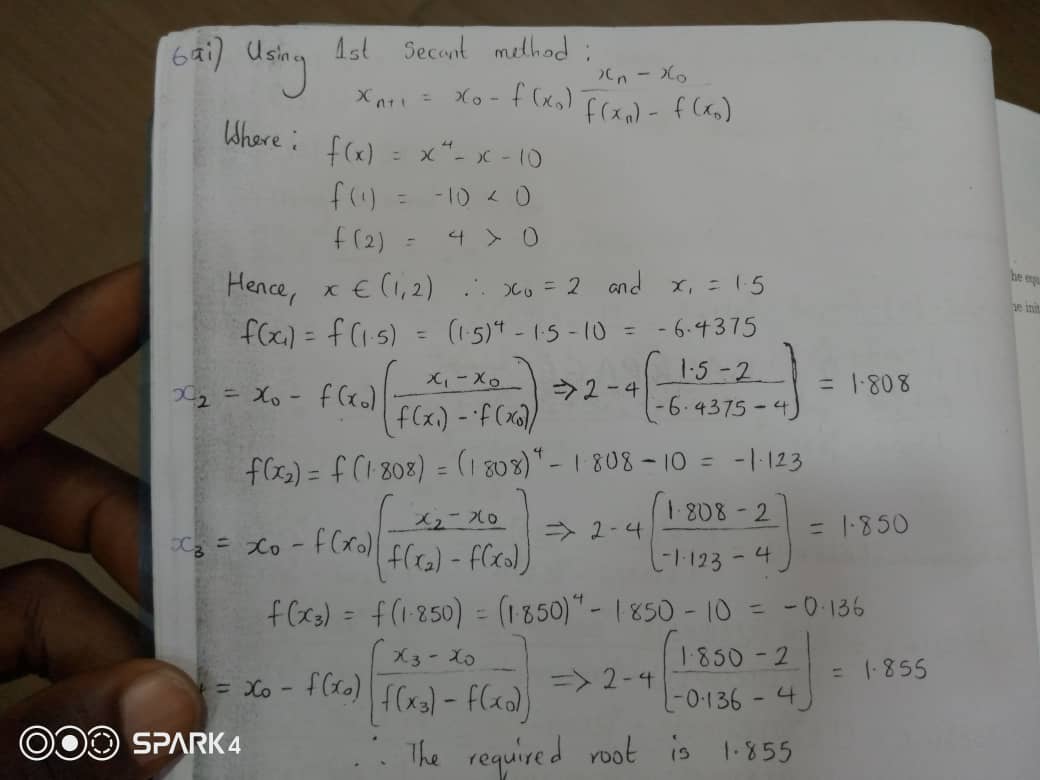 6ai) Using 1st Secant method :
xₙ₊₁ = x₀ - f(x₀) (xₙ - x₀) / (f(xₙ) - f(x₀))
Where : f(x) = x⁴ - x - 10
f(1) = -10 < 0
f(2) = 4 > 0
Hence, x ∈ (1,2) ∴ x₀ = 2 and x₁ = 1.5
f(x₁) = f(1.5) = (1.5)⁴ - 1.5 - 10 = -6.4375
x₂ = x₀ - f(x₀) ((x₁ - x₀) / (f(x₁) - f(x₀))) ⇒ 2 - 4 ((1.5 - 2) / (-6.4375 - 4)) = 1.808
f(x₂) = f(1.808) = (1.808)⁴ - 1.808 - 10 = -1.123
x₃ = x₀ - f(x₀) ((x₂ - x₀) / (f(x₂) - f(x₀))) ⇒ 2 - 4 ((1.808 - 2) / (-1.123 - 4)) = 1.850
f(x₃) = f(1.850) = (1.850)⁴ - 1.850 - 10 = -0.136
= x₀ - f(x₀) ((x₃ - x₀) / (f(x₃) - f(x₀))) ⇒ 2 - 4 ((1.850 - 2) / (-0.136 - 4)) = 1.855
∴ The required root is 1.855
SPARK 4